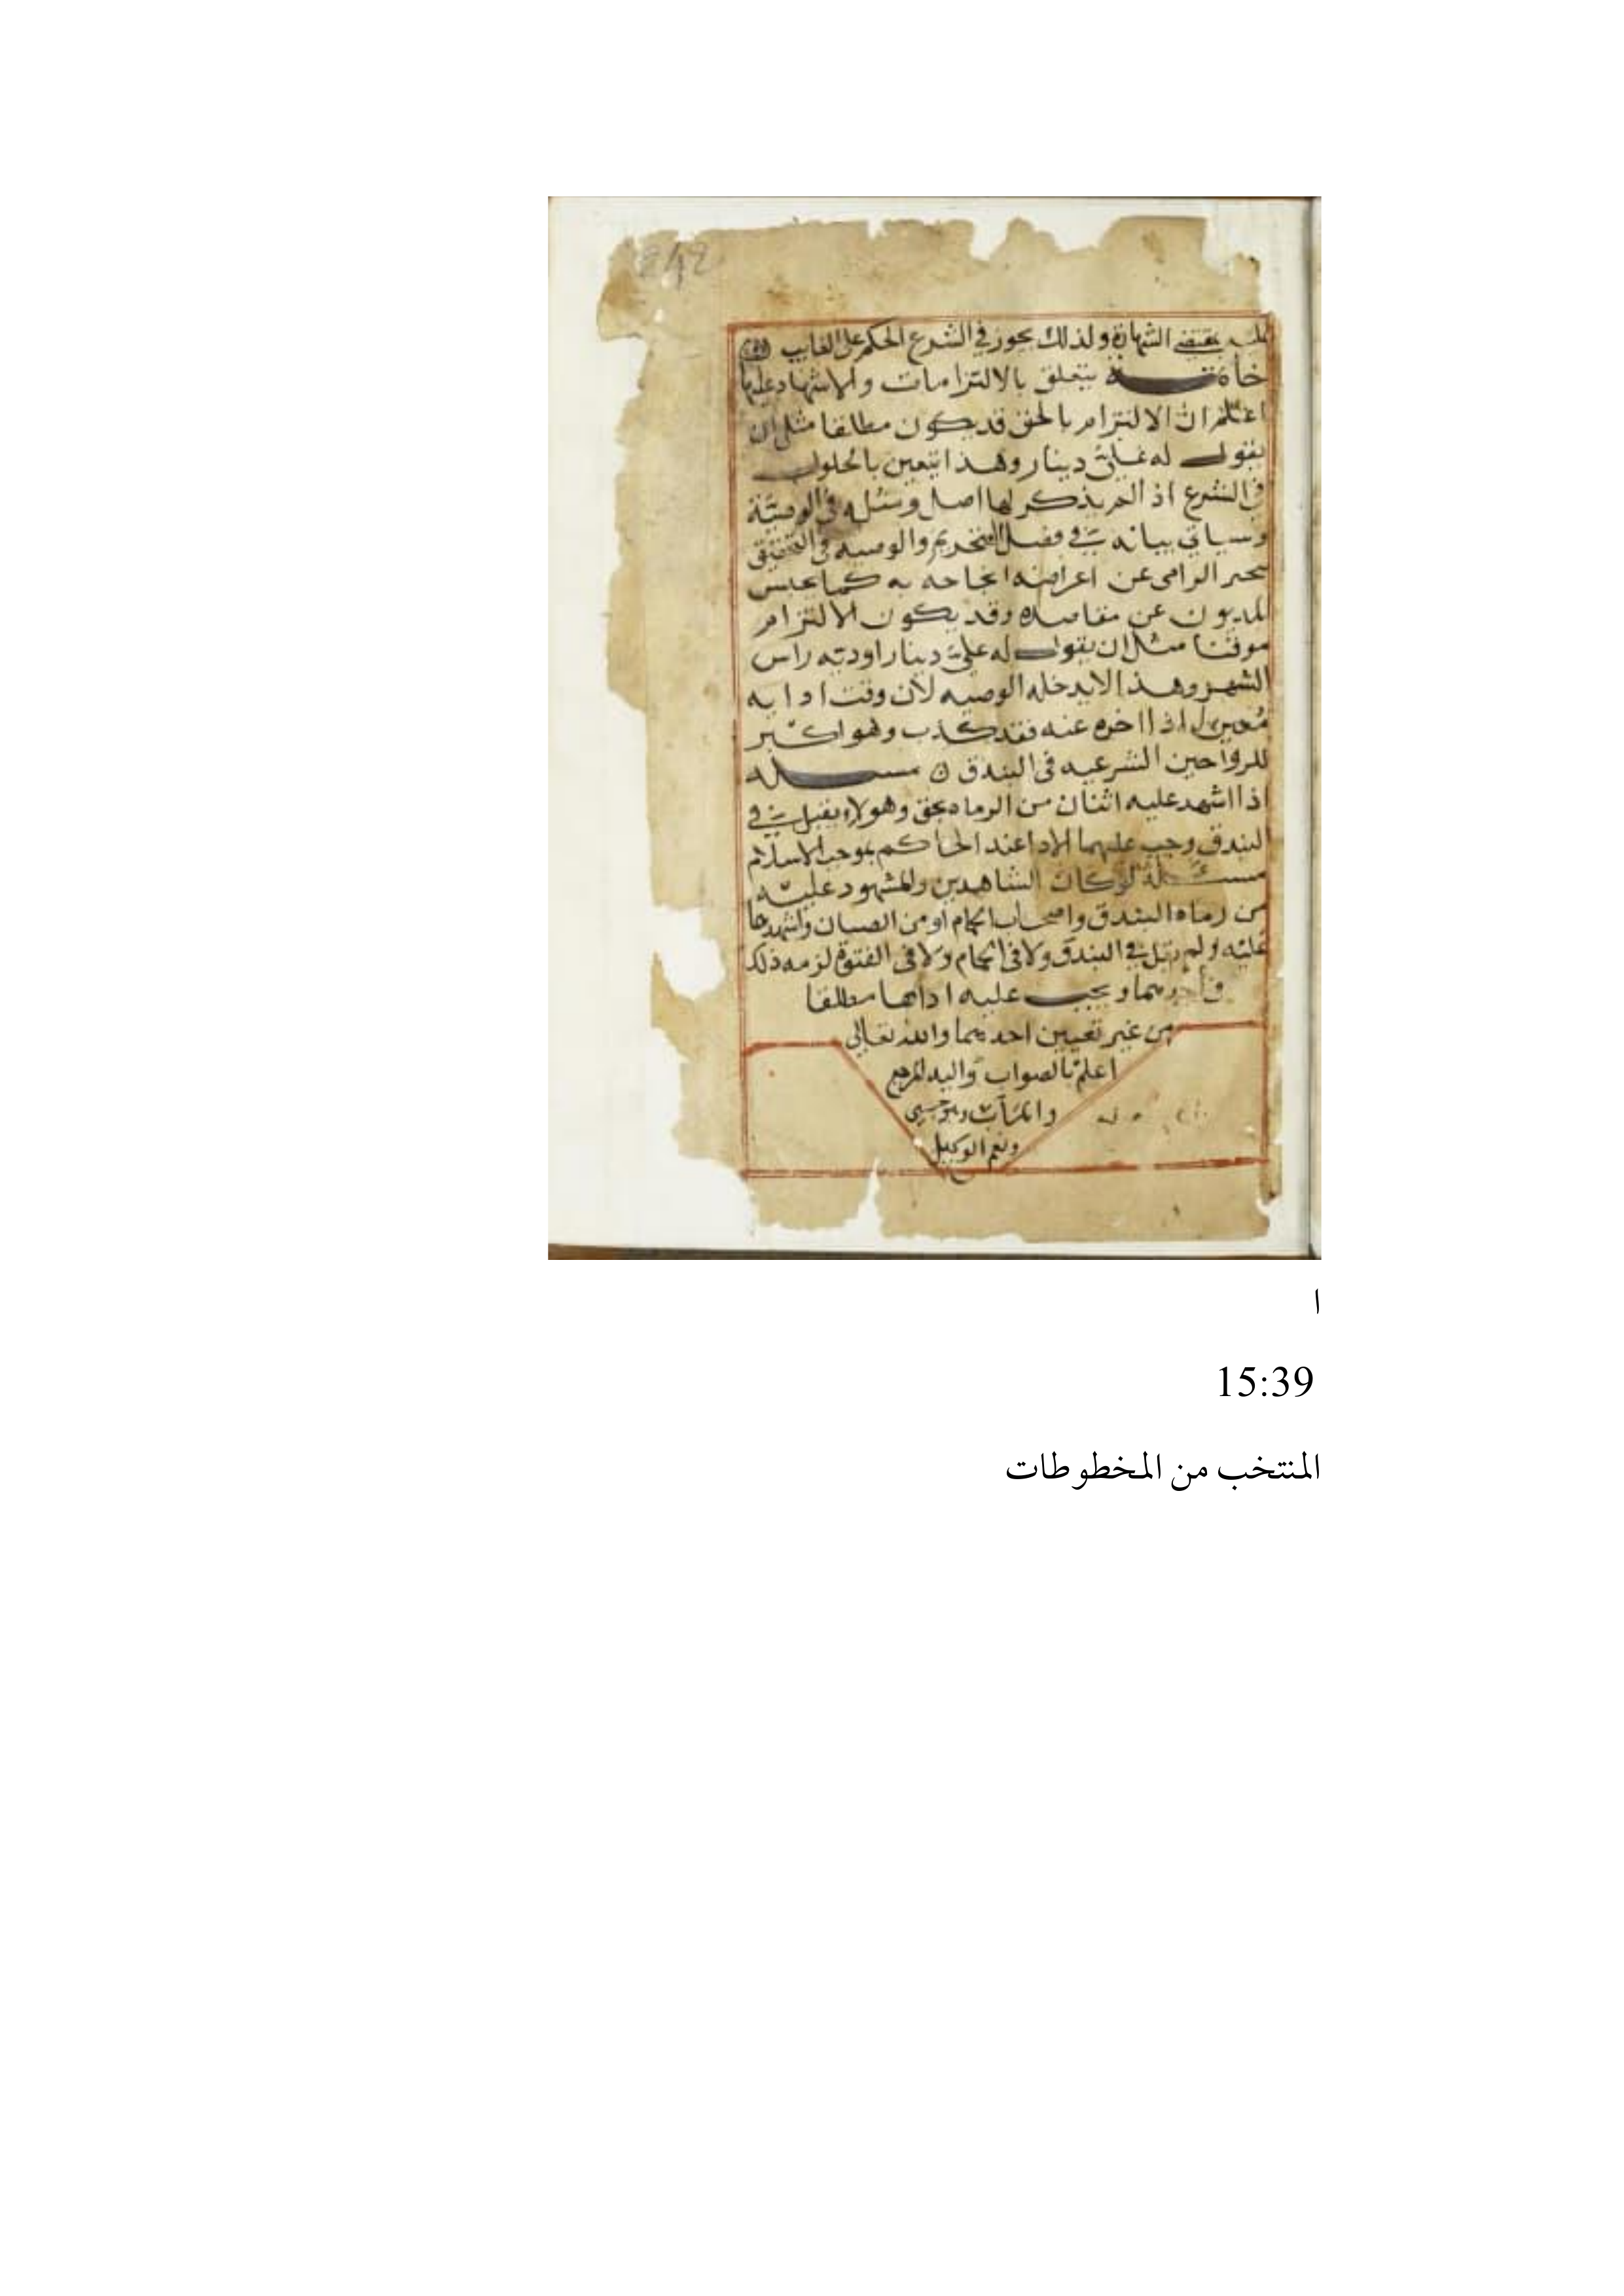 242
عليه بمقتضى الشهادة ولذلك يجوز في الشرع الحكم على الغايب
خاتمة يتعلق بالالتزامات والاشهاد عليها
اعلم ان الالتزام بالحق قد يكون مطلقا مثل ان
يقول له علي دينار وهذا يتعين بالحلول
في الشرع اذ الم يذكر لها اصل ومثله في الوصية
وسياتي بيانه في فصل والوصيه في التحقيق
الرامى عن اغراضه به كما يحبس
المديون عن مقاصده وقد يكون الالتزام
موقتا مثل ان يقول له علي دينار اوديه راس
الشهر وهذا لا يدخله الوصيه لان وقت ادايه
معين اذا اخره عنه فقد كذب وهو اكبر
الشرعيه في البندق مسله
اذا اشهد عليه اثنان من الرماه بحق وهو لا يقبل في
البندق وجب عليهما الادا عند الحاكم بموجب الاسلام
مسئلة لو كان الشاهدين والمشهود عليه
من رماه البندق واصحاب الحمام او من واشهدها
عليه ولم يقل في البندق ولا في الحمام ولا في الفتوة لزمه ذلك
ويجب عليه اداها مطلقا
من غير تعيين احديهما والله تعالى
اعلم بالصواب واليه المرجع
والمآب وهو حسبي
ونعم الوكيل
ا
15:39
المنتخب من المخطوطات